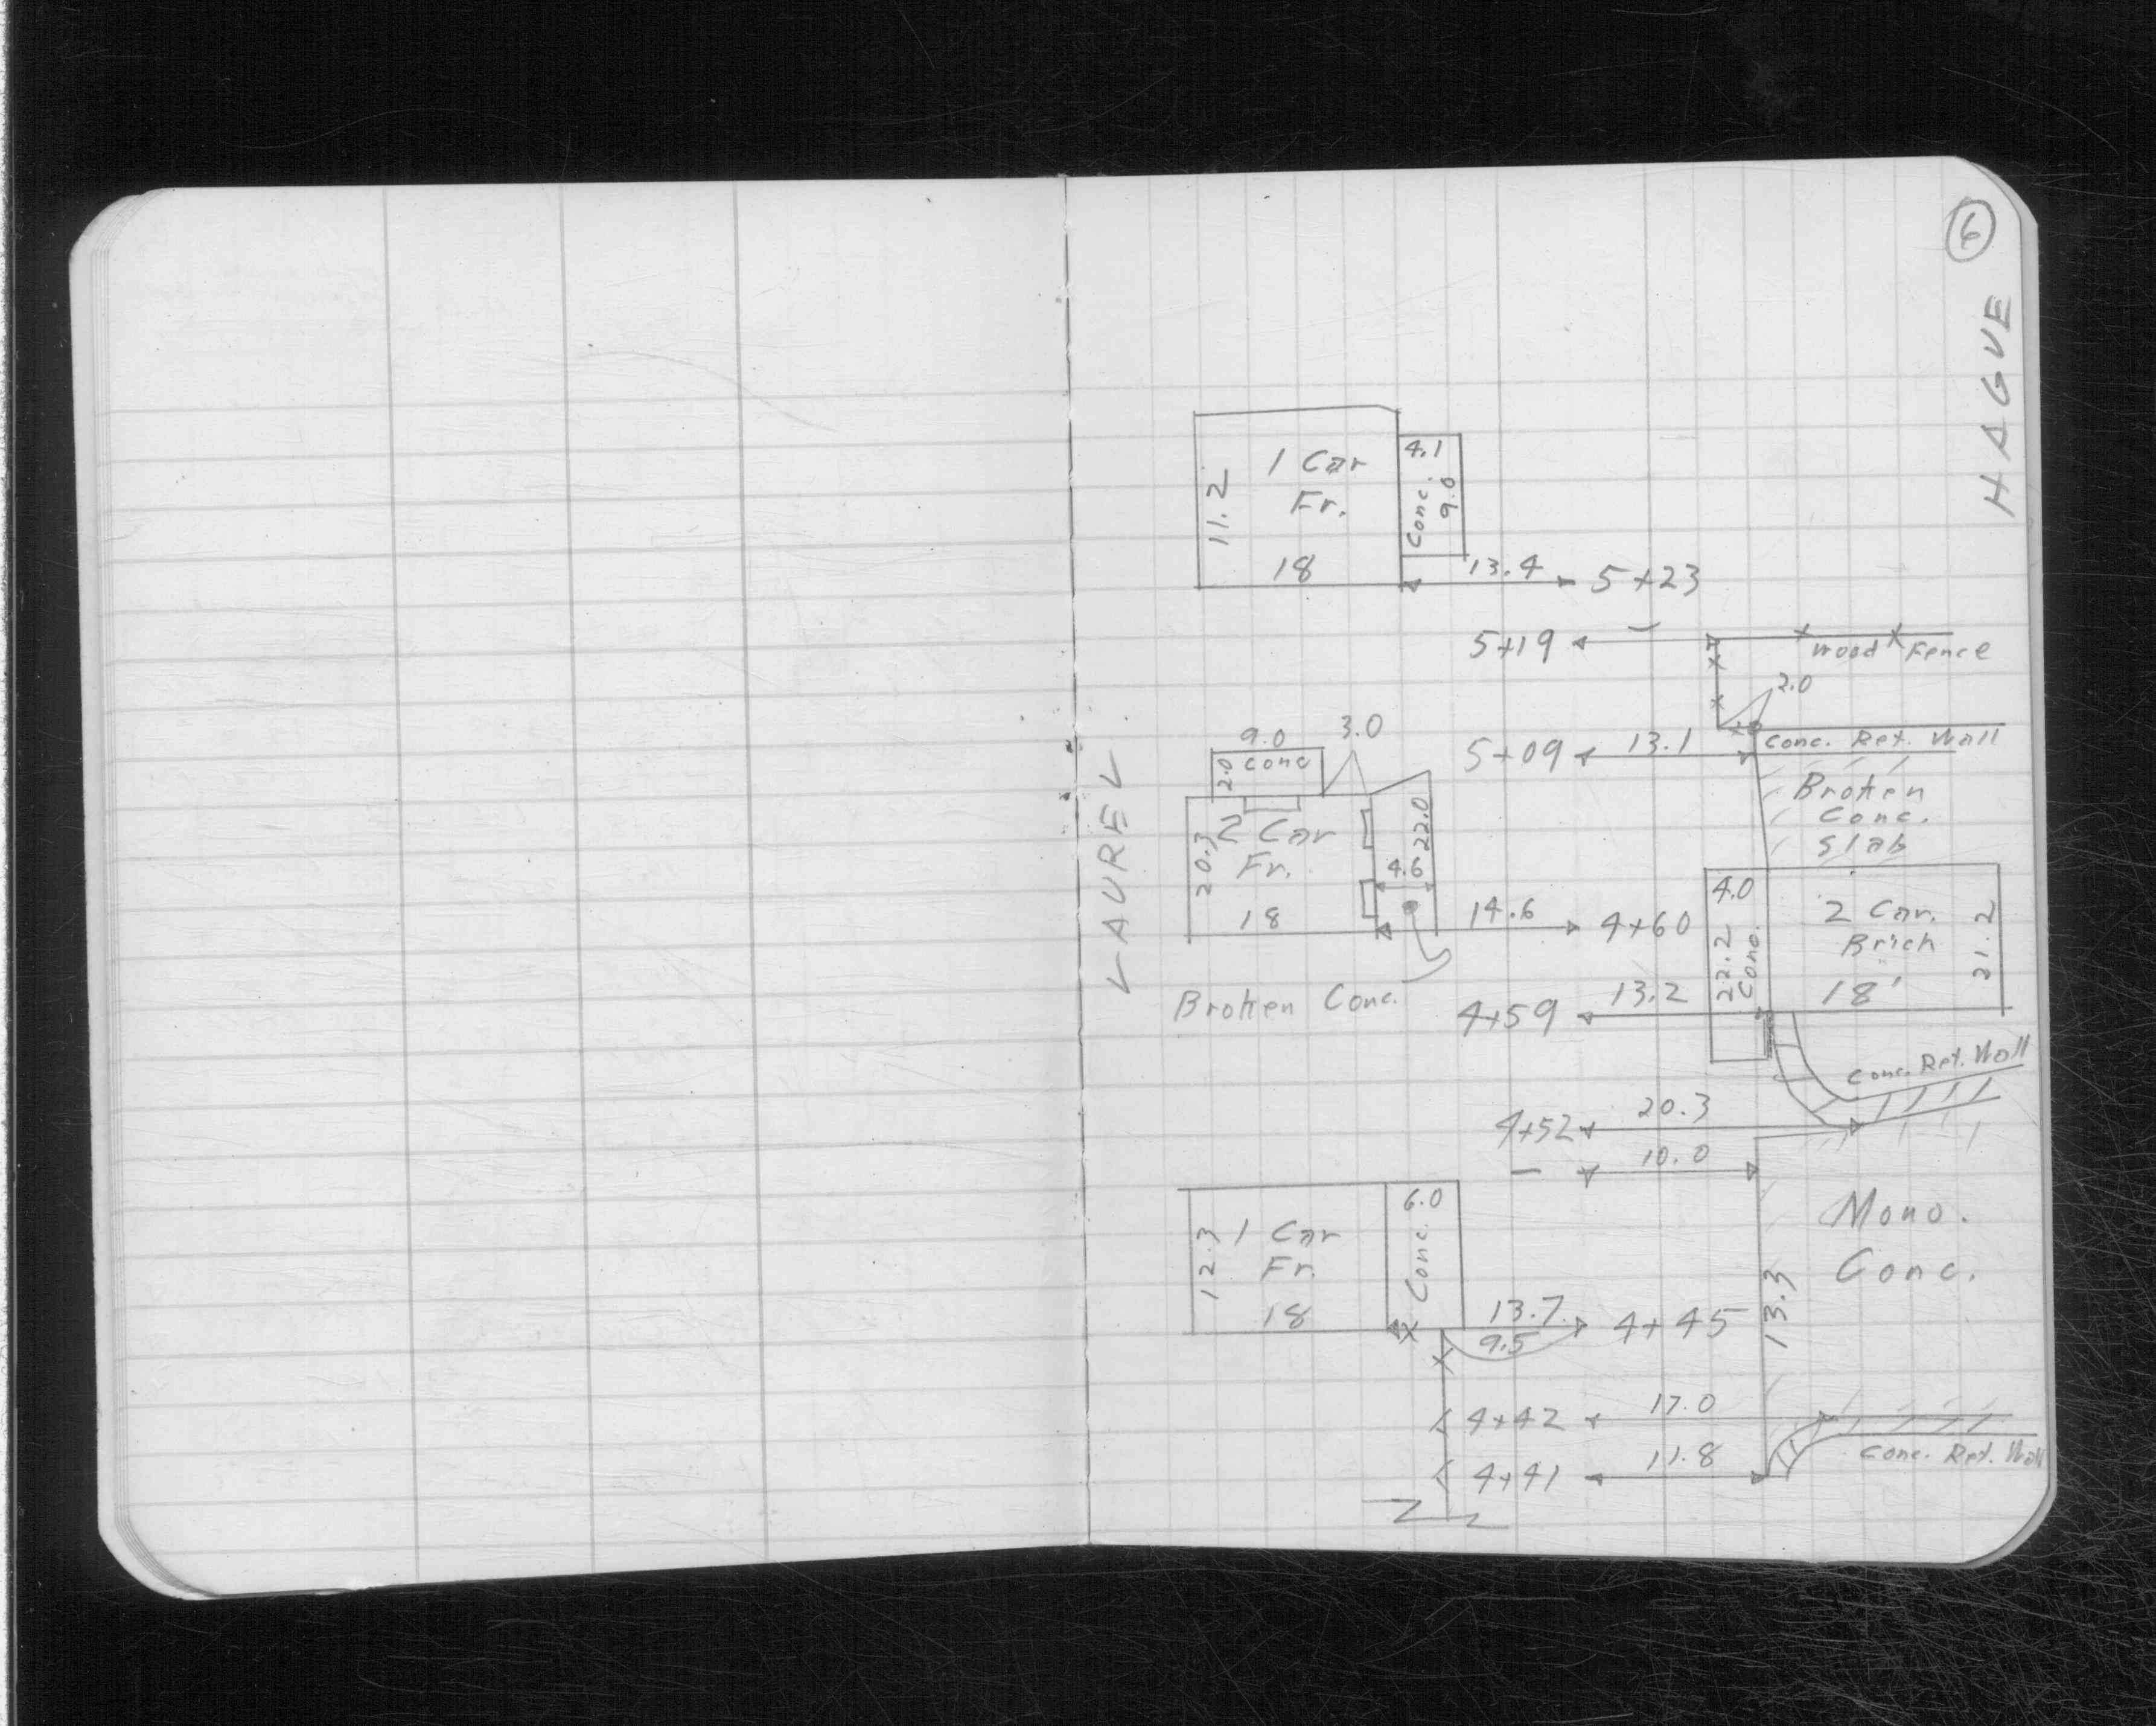 6
HAGUE
LAUREL
1 Car
Fr.
11.2
18
4.1
Conc.
9.0
13.4
5+23
5+19
Wood Fence
2.0
9.0
2.0
conc
3.0
5+09
13.1
Conc. Ret. Wall
Broken
Conc.
Slab
20.3
2 Car
Fr.
18
22.0
4.6
14.6
4+60
Broken Conc.
4.0
22.2
Conc.
2 Car.
Brick
18'
21.2
4+59
13.2
Conc. Ret. Wall
4+52
20.3
10.0
12.3
1 Car
Fr.
18
6.0
Conc.
13.7
9.5
4+45
Mono.
Conc.
13.3
4+42
17.0
4+41
11.8
Conc. Ret. Wall